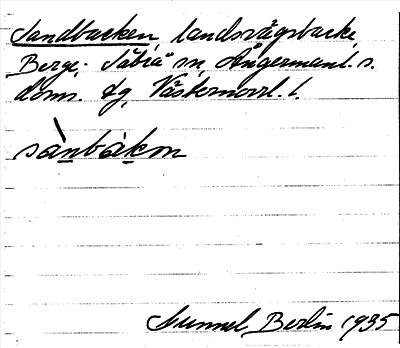 Sandbacken, landsvägsbacke,
Berge, Säbrå sn, Ångermanl. s.
doms. dg, Västernorrl. l.
sànbákɒn
Gunnel Berlin 1935